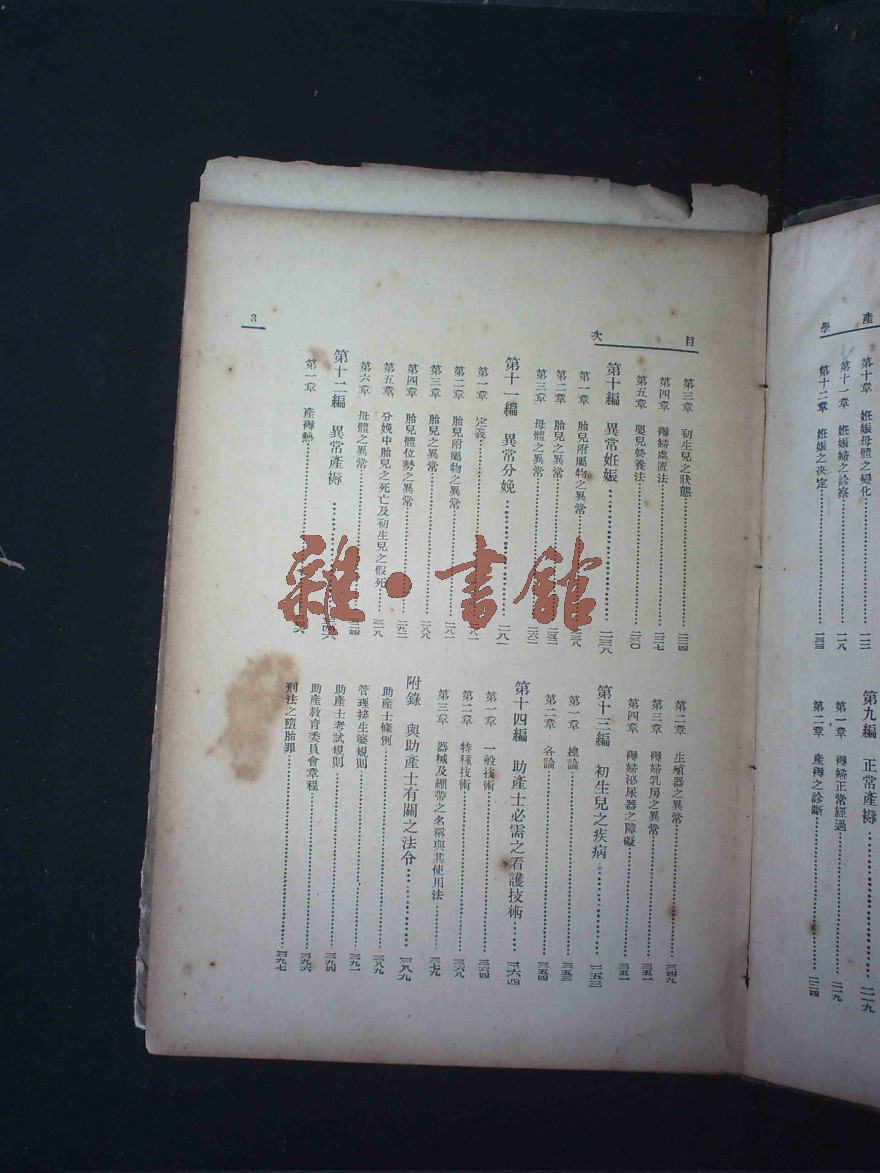 產
學
第十章 姙娠母體之變化……一一二
第十一章 姙娠婦之診察……一一八
第十二章 姙娠之決定……
第九編 正常產褥……二一九
第一章 褥婦正常經過……二一九
第二章 產褥之診斷……二二四
目次
第三章 初生兒之狀態……二二四
第四章 褥婦處置法……二二七
第五章 嬰兒營養法……二三〇
第十編 異常姙娠……二三八
第一章 胎兒附屬物之異常……二三八
第二章 胎兒之異常……
第三章 母體之異常……
第十一編 異常分娩……二八一
第一章 定義……二八一
第二章 胎兒附屬物之異常……二八一
第三章 胎兒之異常……二八八
第四章 胎兒體位勢之異常……二九二
第五章 分娩中胎兒之死亡及初生兒之假死……三一八
第六章 母體之異常……
第十二編 異常產褥……三四六
第一章 產褥熱……
第二章 生殖器之異常……三四九
第三章 褥婦乳房之異常……三五一
第四章 褥婦泌尿器之障礙……三五一
第十三編 初生兒之疾病……三五三
第一章 總論……三五三
第二章 各論……三五四
第十四編 助產士必需之看護技術……三六四
第一章 一般技術……三六四
第二章 特種技術……三六八
第三章 器械及繃帶之名稱與其使用法……三七九
附錄 與助產士有關之法令……三八九
助產士條例……三八九
管理接生婆規則……三九一
助產士考試規則……三九四
助產教育委員會章程……三九六
刑法之墮胎罪……三九七
3
雜·書館